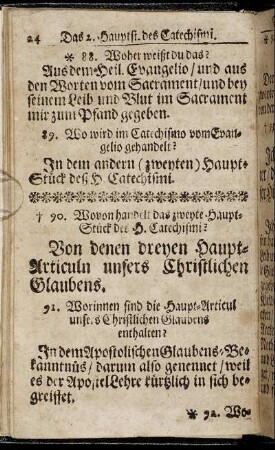 24 Das 2. Hauptst. des Catechismi.
* 88. Woher weißt du das?
Aus dem Heil. Evangelio/ und aus
den Worten vom Sacrament/und bey
seinem Leib und Blut im Sacrament
mir zum Pfand gegeben.
89. Wo wird im Catechismo vom Evan-
gelio gehandelt?
In dem andern (zweyten) Haupt-
Stück deß H. Catechismi.
† 90. Wovon handelt das zweyte Haupt-
Stück des H. Catechismi?
Von denen dreyen Haupt-
Articuln unsers Christlichen
Glaubens.
91. Worinnen sind die Haupt-Articul
unsers Christlichen Glaubens
enthalten?
In dem Apostolischen Glaubens-Be-
känntnüs/ darum also genennet/ weil
es der Apostel Lehre kürtzlich in sich be-
greiffet.
* 92. Wo-